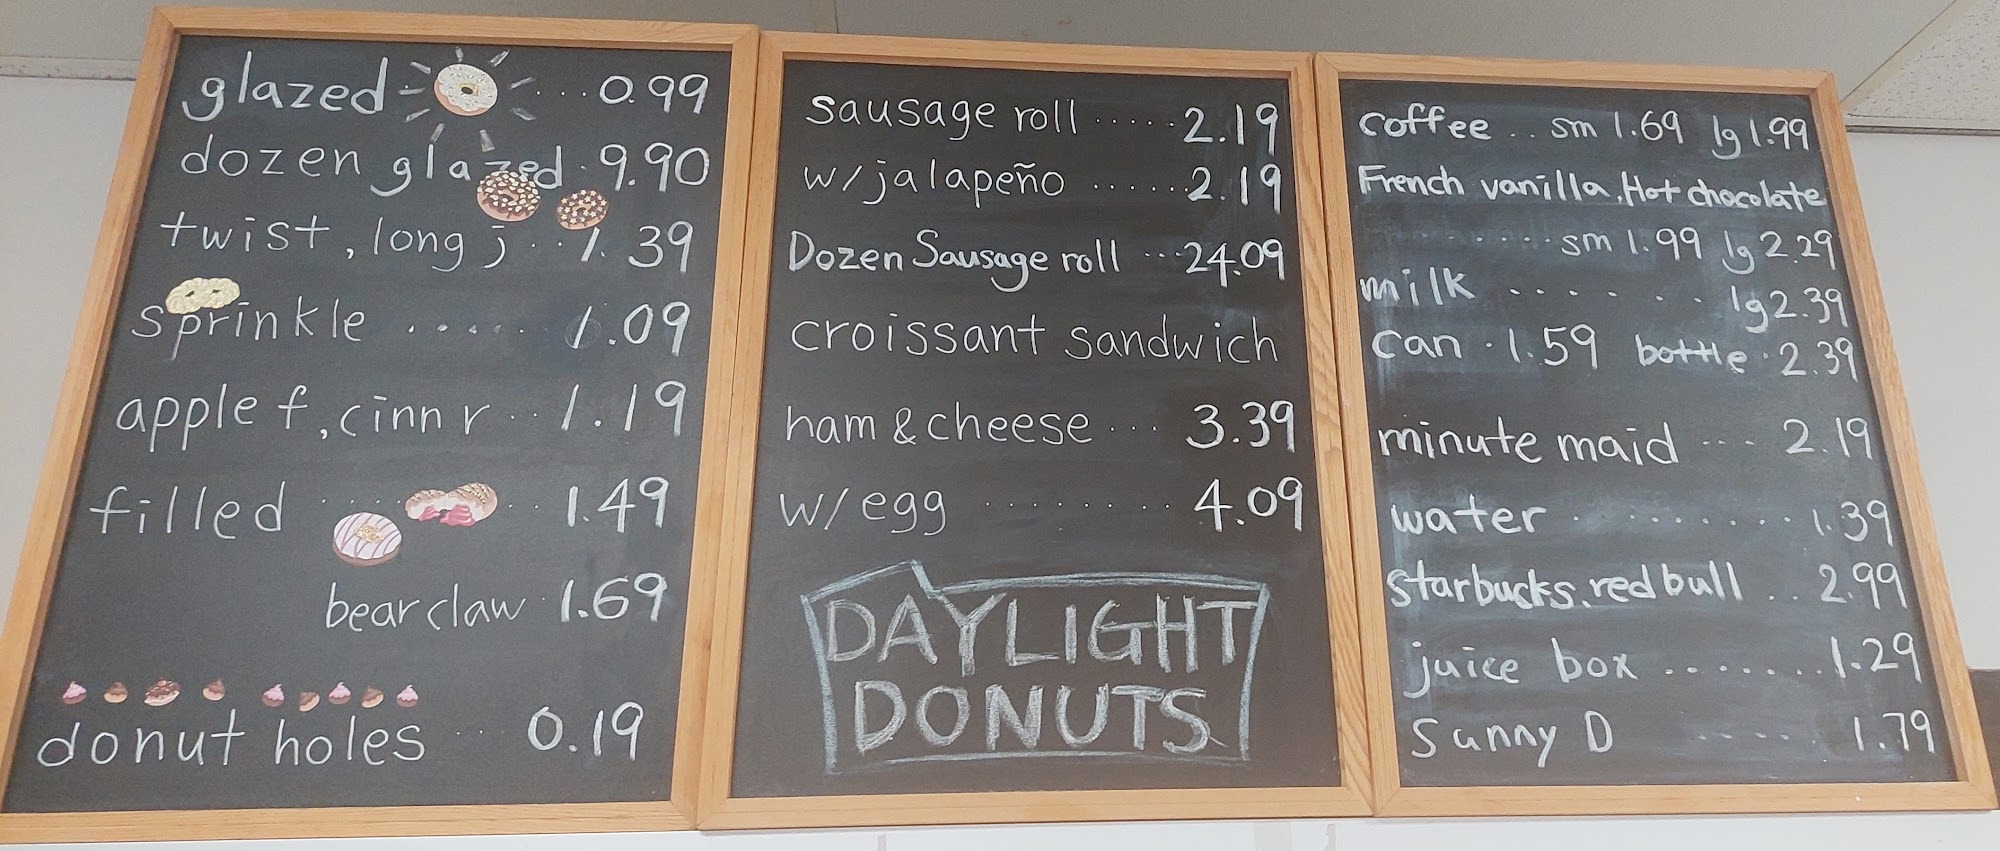 glazed ... 0.99
dozen glazed . 9.90
twist, long j .. 1.39
sprinkle ...... 1.09
apple f, cinn r .. 1.19
filled ....... 1.49
bear claw . 1.69
donut holes ... 0.19
sausage roll ..... 2.19
w/jalapeño ...... 2.19
Dozen Sausage roll ... 24.09
croissant sandwich
ham & cheese ... 3.39
w/egg ........ 4.09
DAYLIGHT
DONUTS
coffee .. sm 1.69 lg 1.99
French vanilla, Hot chocolate
....... sm 1.99 lg 2.29
milk ...... lg 2.39
can . 1.59 bottle . 2.39
minute maid ... 2.19
water ......... 1.39
starbucks, red bull .. 2.99
juice box ....... 1.29
Sunny D ..... 1.79